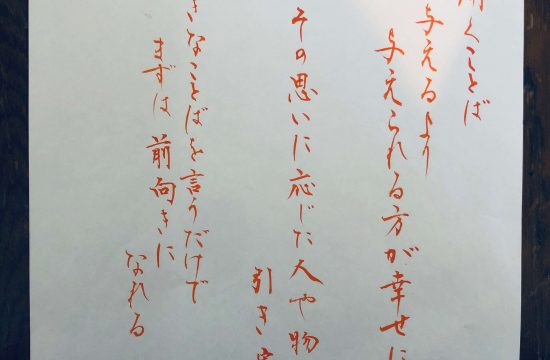 くことば
与えるより
与えられる方が幸せに
その思いに応じた人や物
引き
きなことばを言うだけで
まずは前向きに
なれる